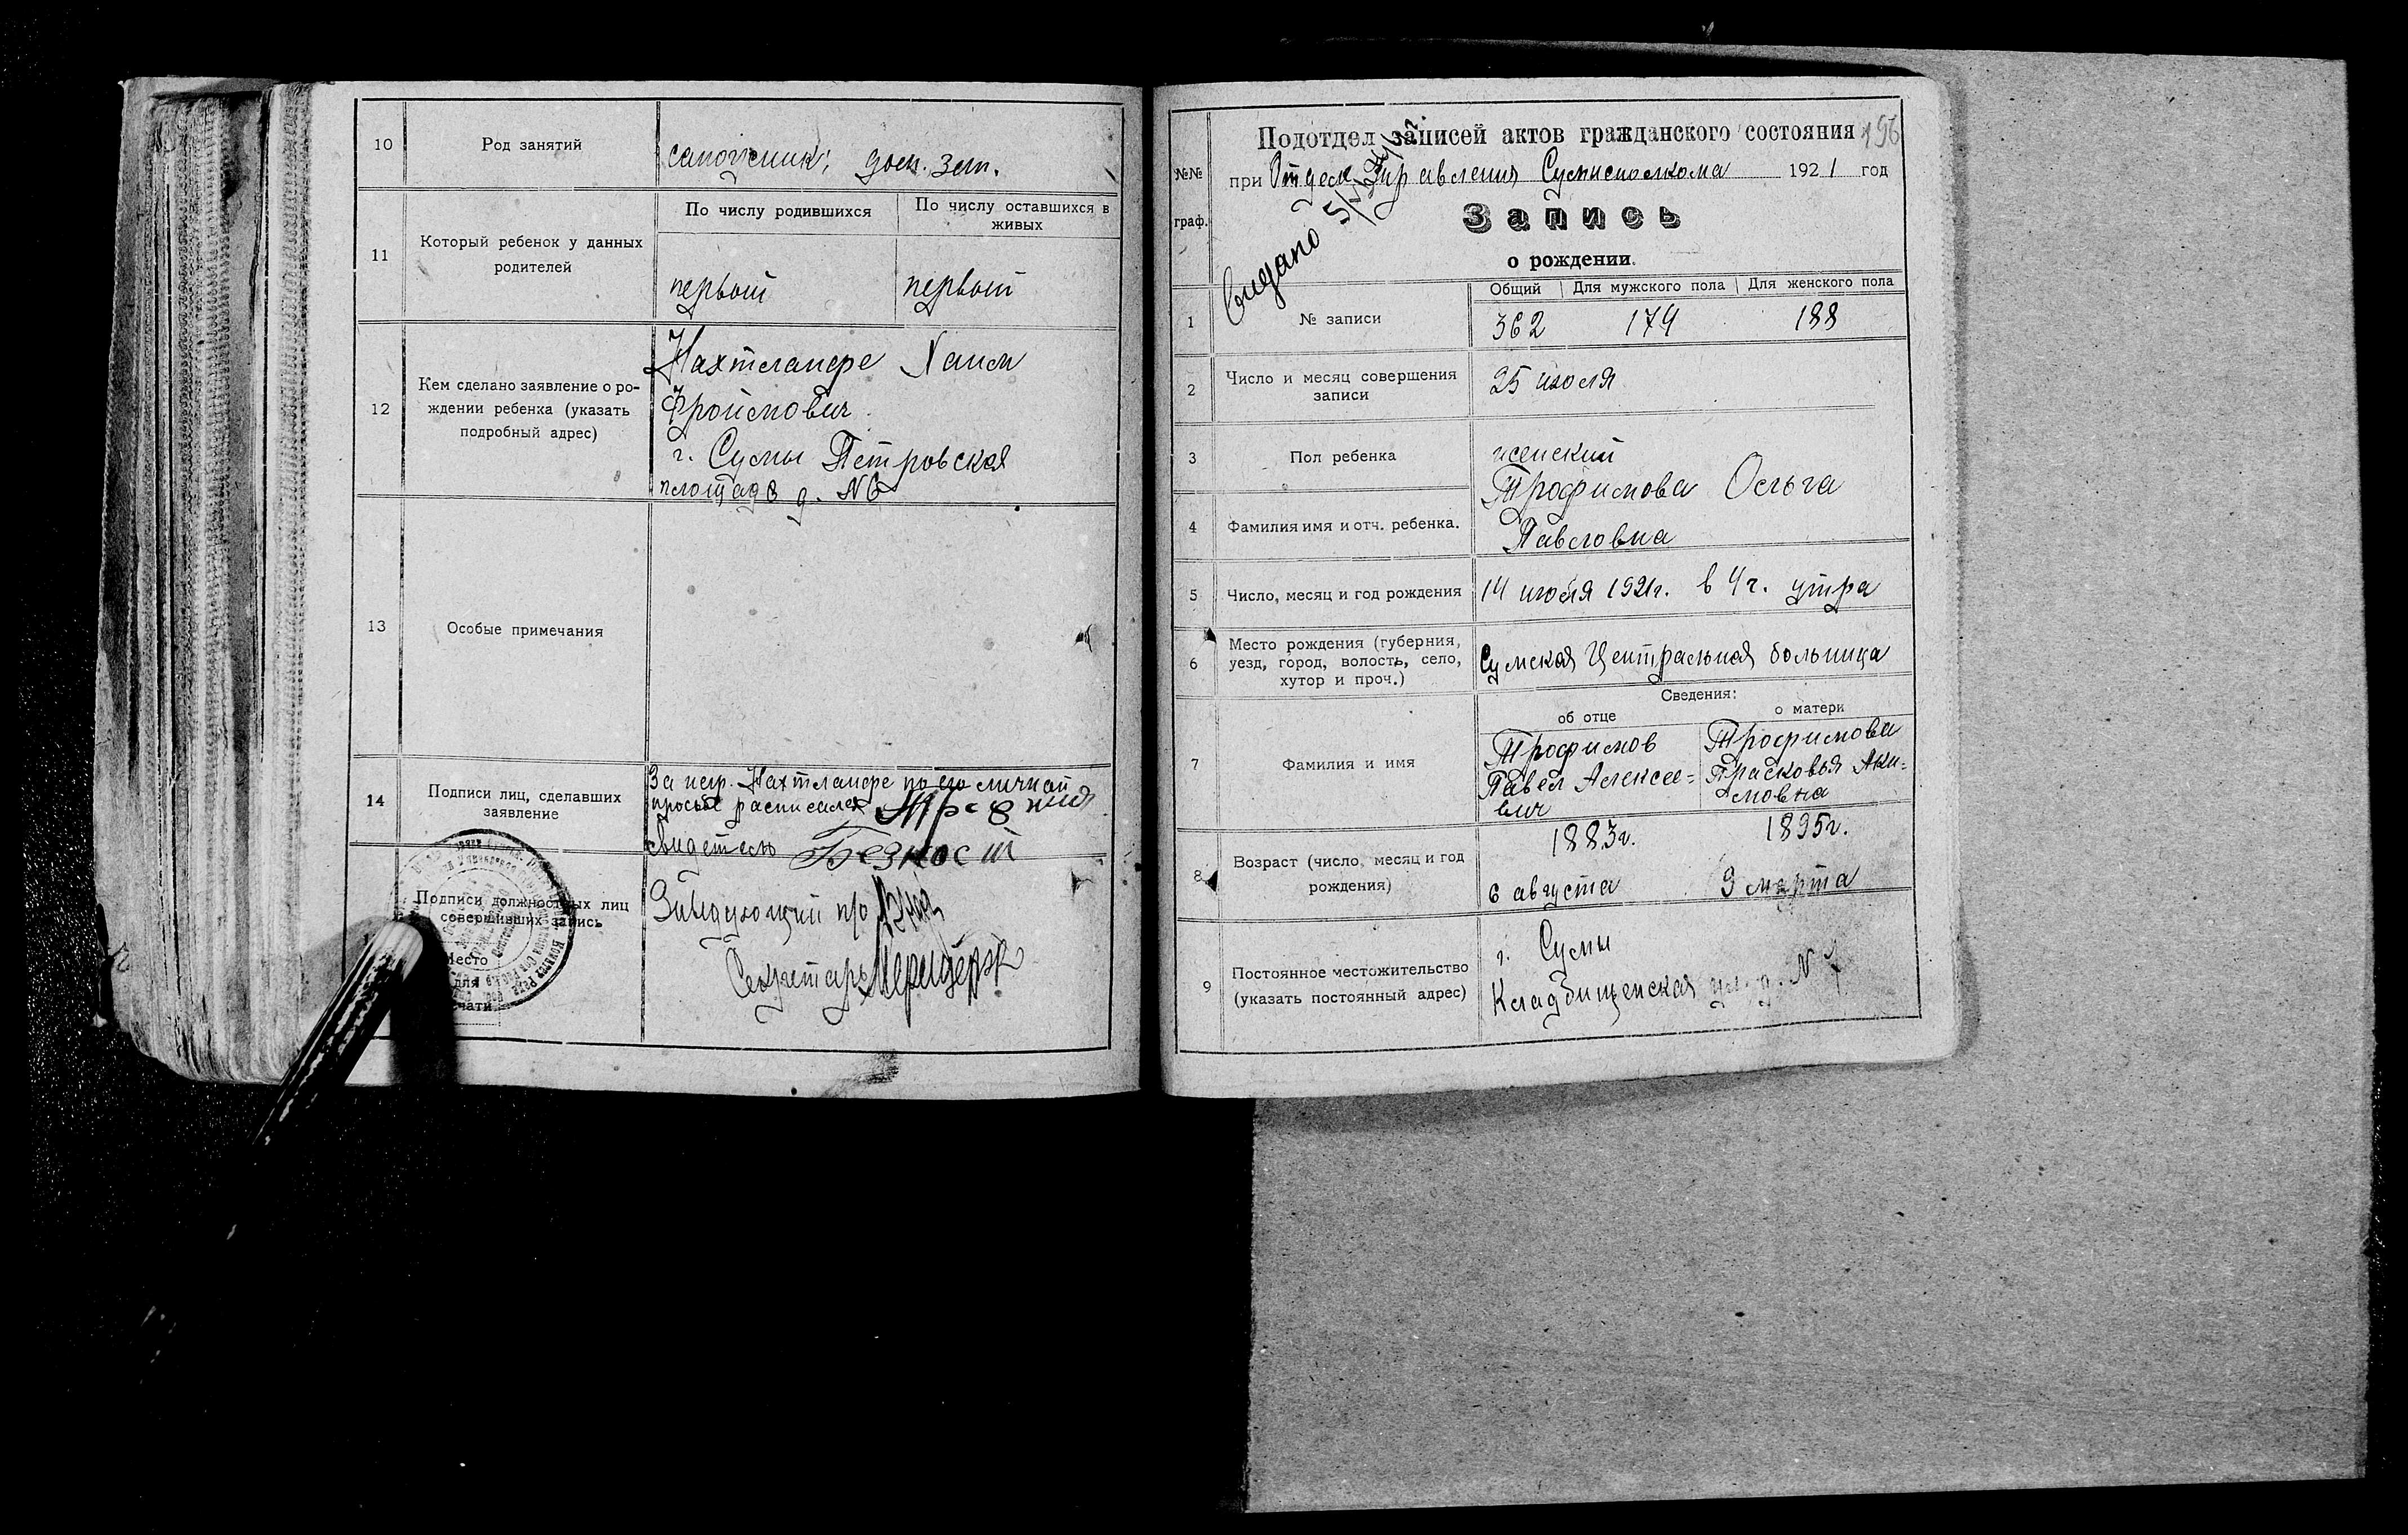 10
Род занятий
сапожник, дом. зан.
11
Который ребенок у данных
родителей
По числу родившихся
По числу оставшихся в
живых
первый
первый
12
Кем сделано заявление о ро-
ждении ребенка (указать
подробный адрес)
Нахтлангре Хаим
Фроймович
г. Сумы Петровская
площадь д. №6
13
Особые примечания
14
Подписи лиц, сделавших
заявление
За негр. Нахтлангре по его личной
просьбе расписался
свидетель
Подписи должностных лиц
совершивших запись
Место
для
печати
Заведующий п/о
Секретарь
Подотдел записей актов гражданского состояния
196
№№
граф.
при Отделе Управления Сумисполкома 1921 год
Запись
о рождении.
Выдано
1
№ записи
Общий
Для мужского пола
Для женского пола
362
174
188
2
Число и месяц совершения
записи
25 июля
3
Пол ребенка
женский
4
Фамилия имя и отч. ребенка.
Трофимова Ольга
Павловна
5
Число, месяц и год рождения
14 июля 1921г. в 4 ч. утра
6
Место рождения (губерния,
уезд, город, волость, село,
хутор и проч.)
Сумская Центральная больница
Сведения:
об отце
о матери
7
Фамилия и имя
Трофимов
Павел Алексее=
вич
Трофимова
Прасковья Аки=
мовна
8
Возраст (число, месяц и год
рождения)
1883г.
6 августа
1895г.
9 марта
9
Постоянное местожительство
(указать постоянный адрес)
г. Сумы
Кладбищенская ул. д. №